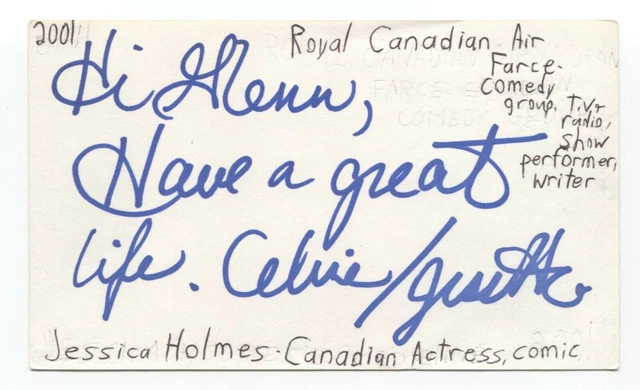 2001
Royal Canadian Air
Farce-
Comedy
group. T.V+
radio,
show
performer,
writer
Hi Glenn,
Have a great
life. Celine/
Jessica Holmes - Canadian Actress, comic